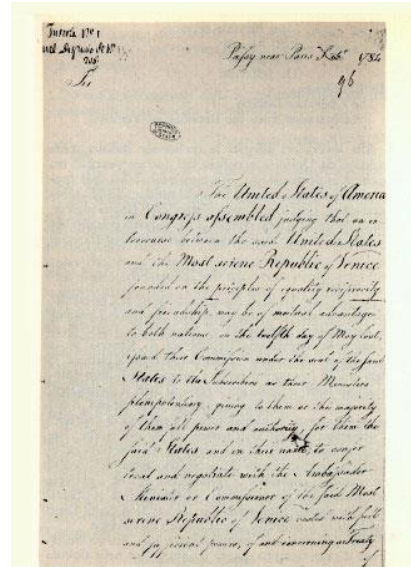 Inserta N° 1
nel
Sir
Passy near Paris
The United States of America
in Congress assembled judging that an in-
tercourse between the said United States
and the Most serene Republic of Venice
founded on the principles of equality reciprocity
and friendship may be of mutual advantage
to both nations, on the twelfth day of May last,
issued their Commission under the seal of the said
States to the Subscribers as their Ministers
plenipotentiary, giving to them or the majority
of them full power and authority, for them the
said States and in their name, to confer
treat and negotiate with the Ambassador
Minister or Commissioner of the said Most
serene Republic of Venice vested with full
and sufficient power, of and concerning a Treaty
of